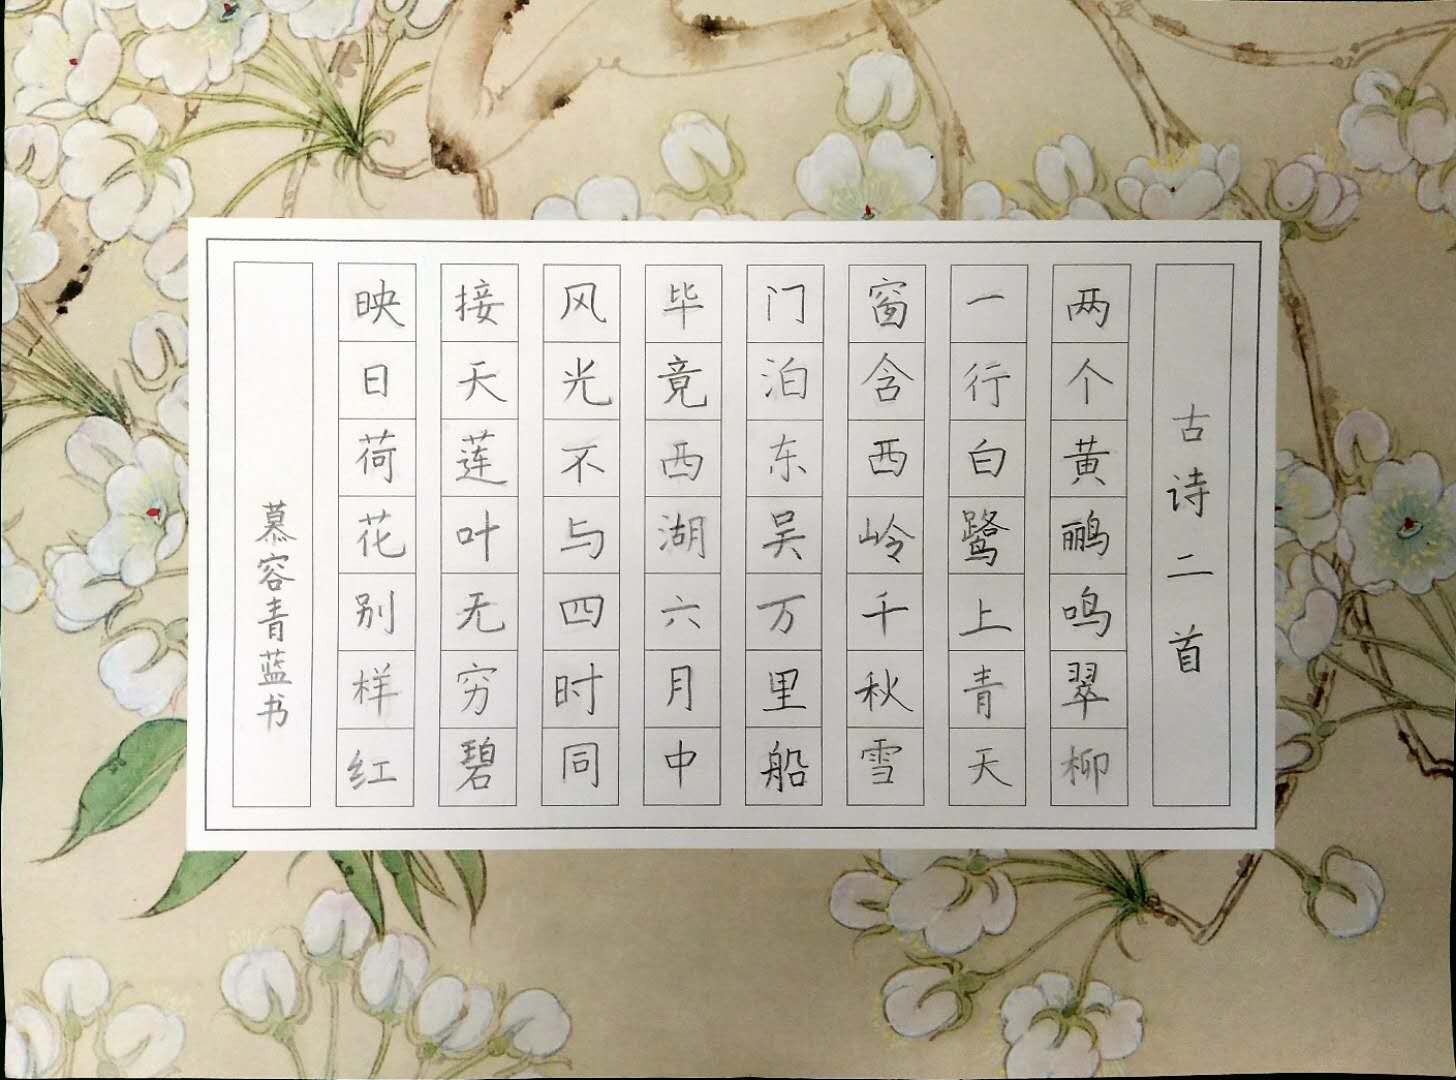 古诗二首
两个黄鹂鸣翠柳
一行白鹭上青天
窗含西岭千秋雪
门泊东吴万里船
毕竟西湖六月中
风光不与四时同
接天莲叶无穷碧
映日荷花别样红
慕容青蓝书